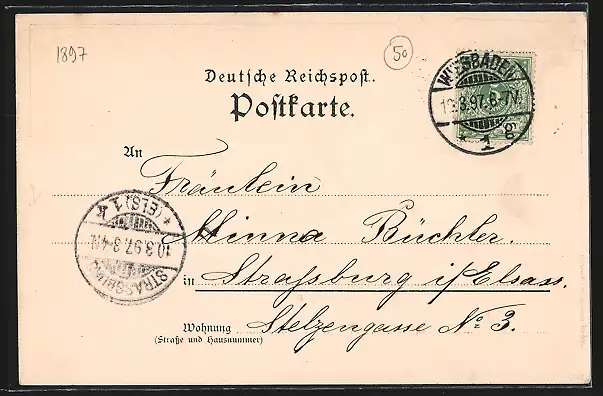 1897
50
Deutsche Reichspost.
Postkarte.
WIESBADEN
10.3.97. 6-7V.
* 1 g
An
Fräulein
Minna Büchler.
in Strassburg i/Elsass.
Wohnung Stelzengasse No. 3.
(Straße und Hausnummer)
STRASSBURG
10.3.97. 3-4N.
* (ELS) 1 k